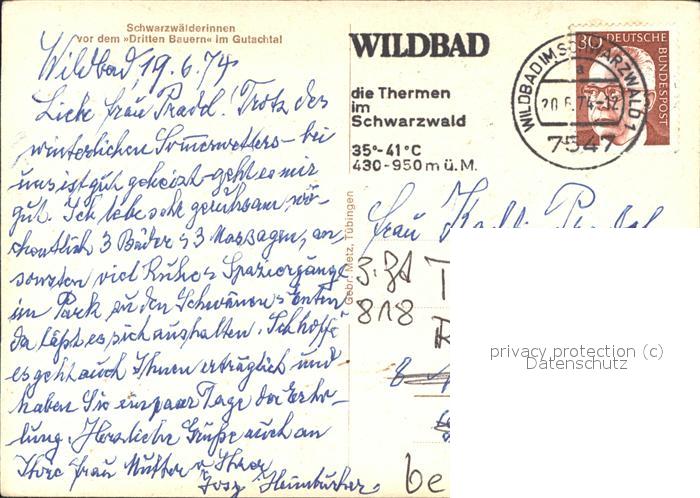 Schwarzwälderinnen
vor dem »Dritten Bauern« im Gutachtal
Wildbad, 19.6.74
Liebe Frau Pradel! Trotz des
winterlichen Sommerwetters - bei
uns ist gut geheizt - geht es mir
gut. Ich lebe sehr geruhsam, wö-
chentlich 3 Bäder & 3 Massagen, an-
sonsten viel Ruhe & Spaziergänge
im Park zu den Schwänen & Enten
da läßt es sich aushalten. Ich hoffe
es geht auch Ihnen erträglich und
haben Sie ein paar Tage der Erho-
lung. Herzliche Grüße auch an
Ihre Frau Mutter v. Ihrer
Heimbürher
Gebr. Metz, Tübingen
WILDBAD
die Thermen
im
Schwarzwald
35°-41°C
430-950 m ü. M.
WILDBAD IM SCHWARZWALD 1
a
20.6.74-12
7547
30 DEUTSCHE
BUNDESPOST
Frau
z. Zt
818
8
be
privacy protection (c)
Datenschutz